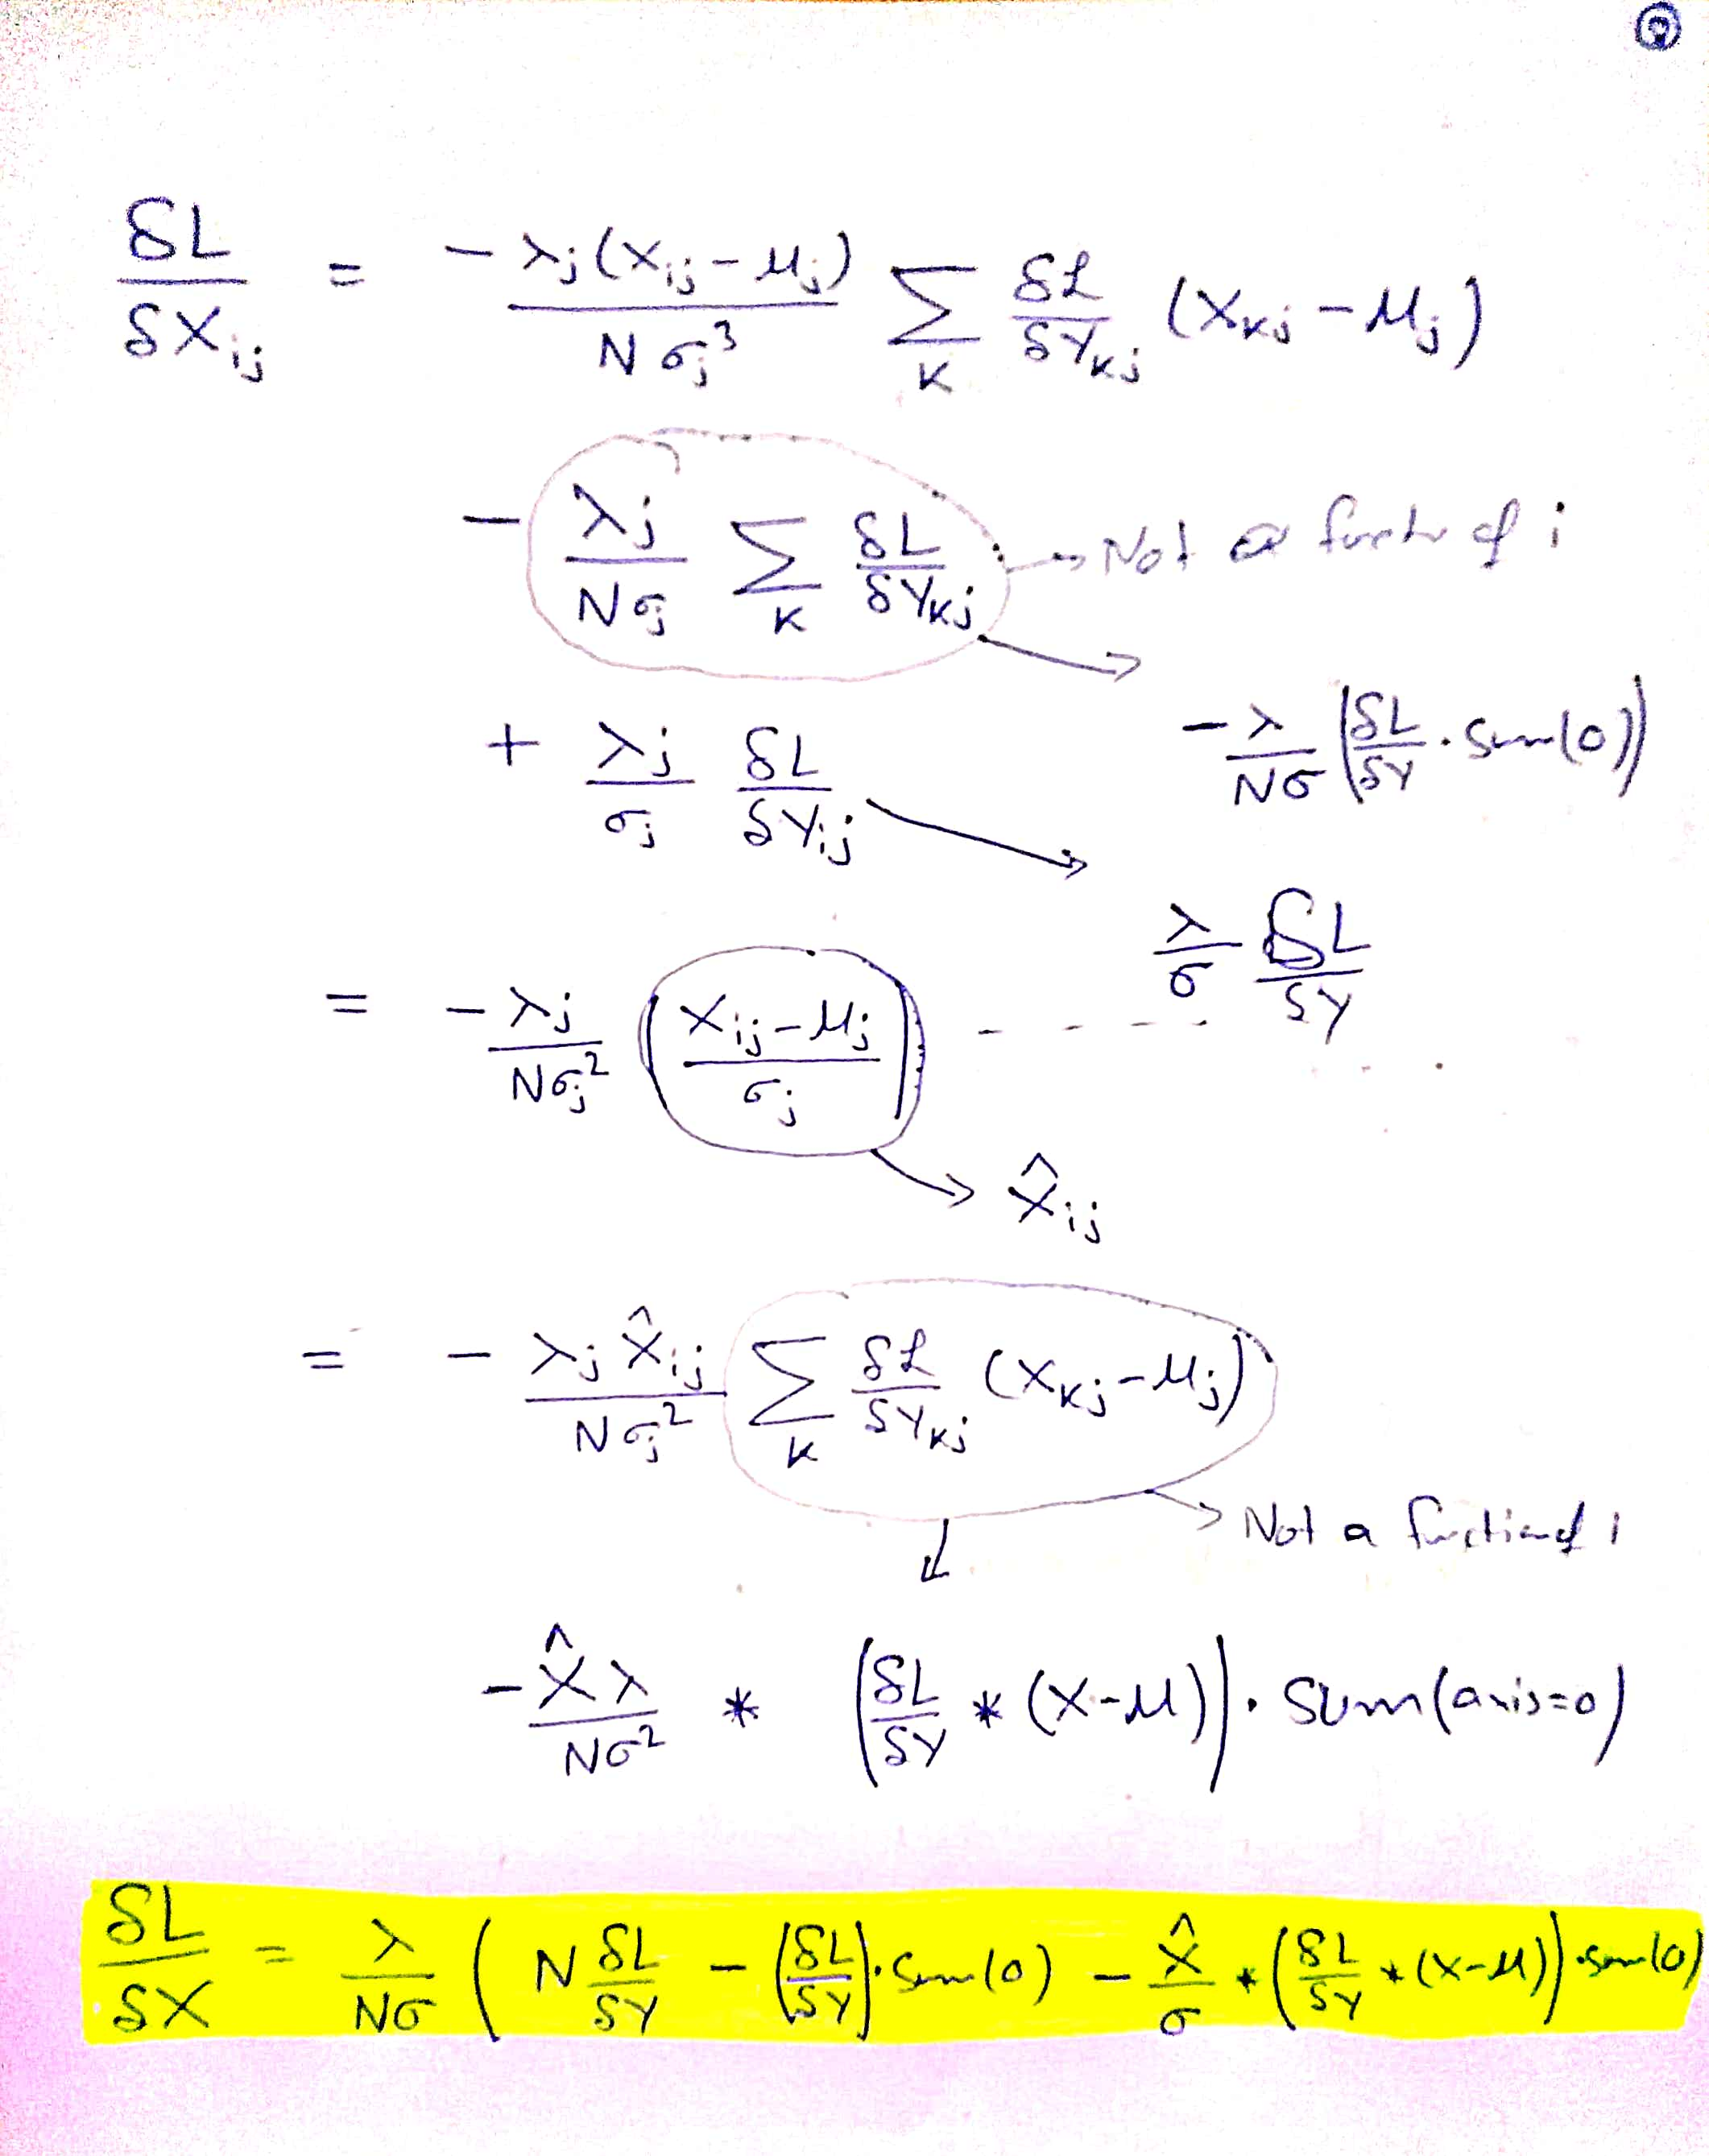 9
δL/δX_ij = -λ_j(X_ij - μ_j)/(Nσ_j^3) Σ_K δL/δY_Kj (X_Kj - μ_j)
- λ_j/(Nσ_j) Σ_K δL/δY_Kj → Not a functn of i
→ -λ/(Nσ) (δL/δY . sum(0))
+ λ_j/σ_j δL/δY_ij
→ λ/σ δL/δY
= -λ_j/(Nσ_j^2) ((X_ij - μ_j)/σ_j) - - - - -
→ X̂_ij
= -λ_j X̂_ij/(Nσ_j^2) Σ_K δL/δY_Kj (X_Kj - μ_j)
→ Not a function of i
↓
-X̂λ/(Nσ^2) * (δL/δY * (X-μ)) . sum(axis=0)
δL/δX = λ/(Nσ) ( N δL/δY - (δL/δY).sum(0) - X̂/σ * (δL/δY * (X-μ)).sum(0)